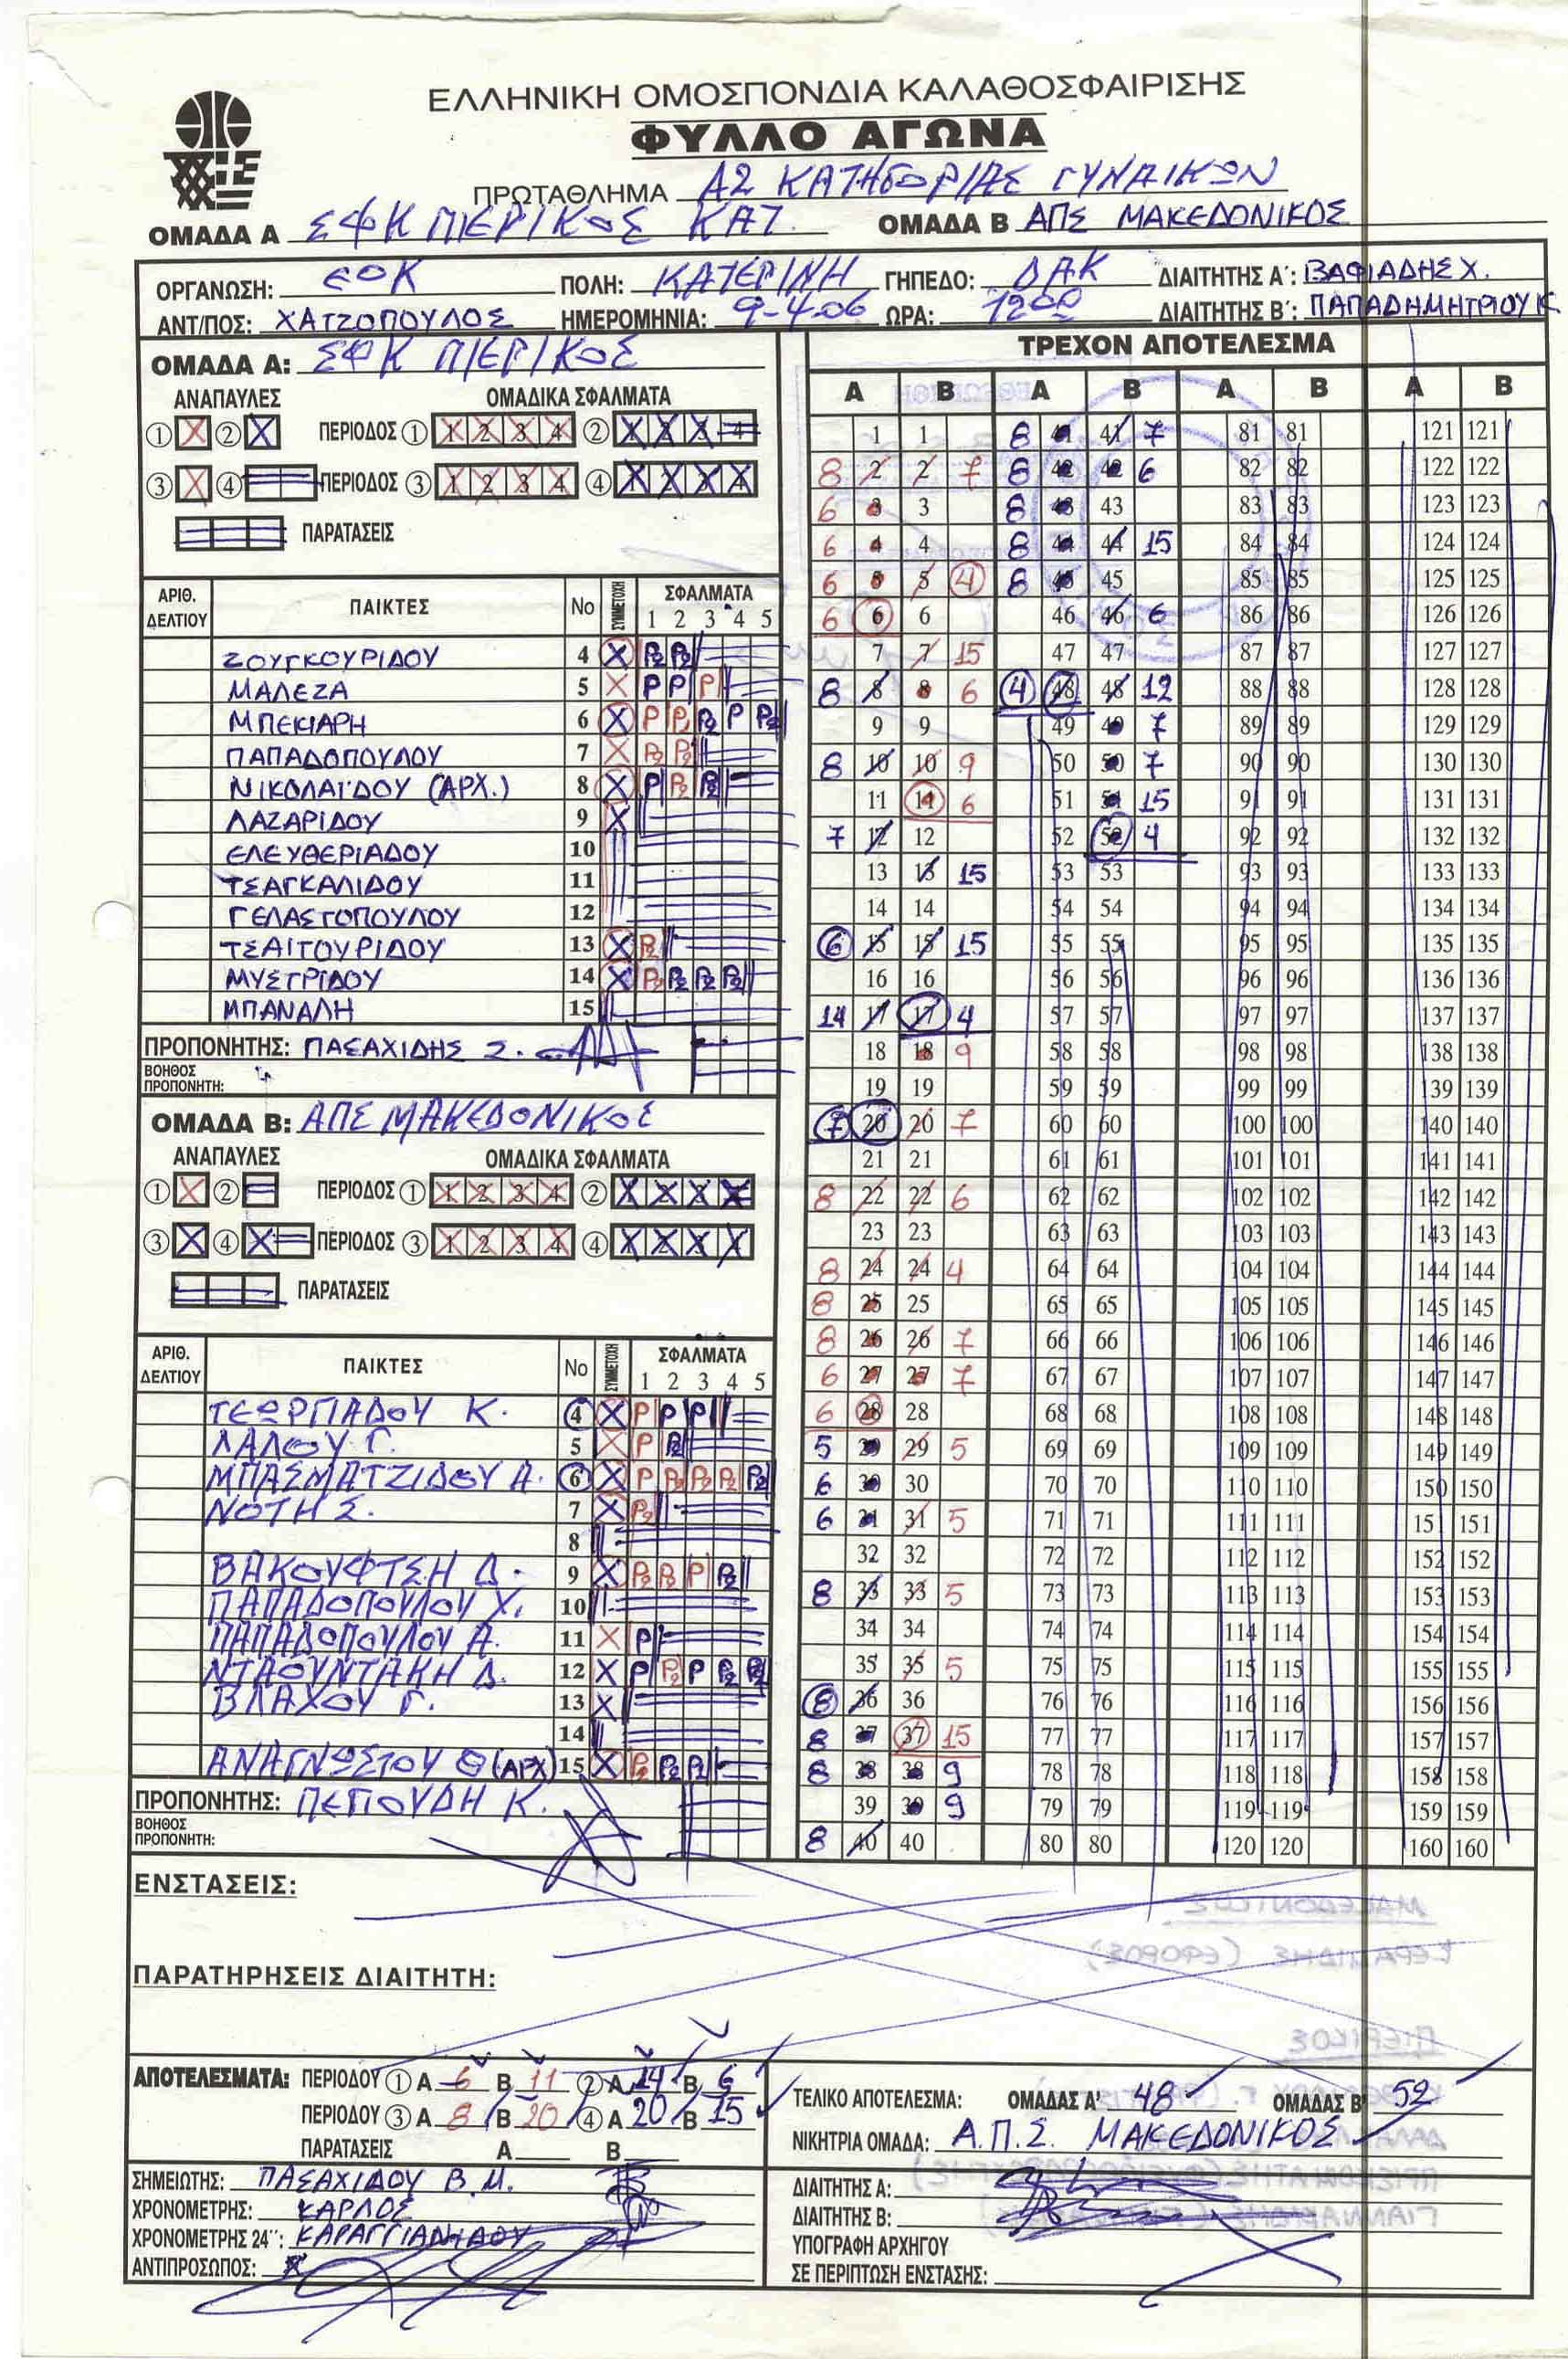 ΕΛΛΗΝΙΚΗ ΟΜΟΣΠΟΝΔΙΑ ΚΑΛΑΘΟΣΦΑΙΡΙΣΗΣ
ΦΥΛΛΟ ΑΓΩΝΑ
ΠΡΩΤΑΘΛΗΜΑ Α2 ΚΑΤΗΓΟΡΙΑΣ ΓΥΝΑΙΚΩΝ
ΟΜΑΔΑ Α ΣΦΚ ΠΙΕΡΙΚΟΣ ΚΑΤ. ΟΜΑΔΑ Β ΑΠΣ ΜΑΚΕΔΟΝΙΚΟΣ
ΟΡΓΑΝΩΣΗ: ΕΟΚ ΠΟΛΗ: ΚΑΤΕΡΙΝΗ ΓΗΠΕΔΟ: ΔΑΚ ΔΙΑΙΤΗΤΗΣ Α΄: ΒΑΦΙΑΔΗΣ Χ.
ΑΝΤ/ΠΟΣ: ΧΑΤΖΟΠΟΥΛΟΣ ΗΜΕΡΟΜΗΝΙΑ: 9-4-06 ΩΡΑ: 12 00 ΔΙΑΙΤΗΤΗΣ Β΄: ΠΑΠΑΔΗΜΗΤΡΙΟΥ Κ
ΟΜΑΔΑ Α: ΣΦΚ ΠΙΕΡΙΚΟΣ
ΑΝΑΠΑΥΛΕΣ ΟΜΑΔΙΚΑ ΣΦΑΛΜΑΤΑ
① X ② X ΠΕΡΙΟΔΟΣ ① 1 2 3 4 ② 1 2 3 4
③ X ④ ΠΕΡΙΟΔΟΣ ③ 1 2 3 4 ④ 1 2 3 4
ΠΑΡΑΤΑΣΕΙΣ
ΑΡΙΘ. ΔΕΛΤΙΟΥ ΠΑΙΚΤΕΣ No ΣΥΜΜΕΤΟΧΗ ΣΦΑΛΜΑΤΑ 1 2 3 4 5
ΖΟΥΓΚΟΥΡΙΔΟΥ 4 X P2 P2
ΜΑΛΕΖΑ 5 X P P P
ΜΠΕΚΙΑΡΗ 6 X P P2 P2 P P2
ΠΑΠΑΔΟΠΟΥΛΟΥ 7 X P2 P2
ΝΙΚΟΛΑΪΔΟΥ (ΑΡΧ.) 8 X P P2 P2
ΛΑΖΑΡΙΔΟΥ 9 X
ΕΛΕΥΘΕΡΙΑΔΟΥ 10
ΤΣΑΓΚΑΛΙΔΟΥ 11
ΓΕΛΑΣΤΟΠΟΥΛΟΥ 12
ΤΣΑΙΤΟΥΡΙΔΟΥ 13 X P2
ΜΥΣΤΡΙΔΟΥ 14 X P2 P2 P2 P2
ΜΠΑΝΑΛΗ 15
ΠΡΟΠΟΝΗΤΗΣ: ΠΑΣΑΧΙΔΗΣ Σ.
ΒΟΗΘΟΣ ΠΡΟΠΟΝΗΤΗ:
ΟΜΑΔΑ Β: ΑΠΣ ΜΑΚΕΔΟΝΙΚΟΣ
ΑΝΑΠΑΥΛΕΣ ΟΜΑΔΙΚΑ ΣΦΑΛΜΑΤΑ
① X ② ΠΕΡΙΟΔΟΣ ① 1 2 3 4 ② 1 2 3 4
③ X ④ X ΠΕΡΙΟΔΟΣ ③ 1 2 3 4 ④ 1 2 3 4
ΠΑΡΑΤΑΣΕΙΣ
ΑΡΙΘ. ΔΕΛΤΙΟΥ ΠΑΙΚΤΕΣ No ΣΥΜΜΕΤΟΧΗ ΣΦΑΛΜΑΤΑ 1 2 3 4 5
ΓΕΩΡΓΙΑΔΟΥ Κ. 4 X P P P
ΛΑΛΟΥ Γ. 5 X P P2
ΜΠΑΣΜΑΤΖΙΔΟΥ Α. 6 X P P2 P2 P2 P2
ΝΟΤΗ Σ. 7 X P2
8
ΒΑΚΟΥΦΤΣΗ Δ. 9 X P2 P2 P P2
ΠΑΠΑΔΟΠΟΥΛΟΥ Χ. 10
ΠΑΠΑΔΟΠΟΥΛΟΥ Α. 11 X P
ΝΤΑΟΥΝΤΑΚΗ Δ. 12 X P P2 P P2 P2
ΒΛΑΧΟΥ Γ. 13 X
14
ΑΝΑΓΝΩΣΤΟΥ Θ (ΑΡΧ) 15 X P2 P2 P2
ΠΡΟΠΟΝΗΤΗΣ: ΠΕΓΙΟΥΔΗ Κ.
ΒΟΗΘΟΣ ΠΡΟΠΟΝΗΤΗ:
ΤΡΕΧΟΝ ΑΠΟΤΕΛΕΣΜΑ
Α Β Α Β Α Β Α Β
1 1 8 41 41 7 81 81 121 121
8 2 2 7 8 42 42 6 82 82 122 122
6 3 3 8 43 43 83 83 123 123
6 4 4 8 44 44 15 84 84 124 124
6 5 5 4 8 45 45 85 85 125 125
6 6 6 46 46 6 86 86 126 126
7 7 15 47 47 87 87 127 127
8 8 8 6 4 48 48 12 88 88 128 128
9 9 49 49 7 89 89 129 129
8 10 10 9 50 50 7 90 90 130 130
11 11 6 51 51 15 91 91 131 131
7 12 12 52 52 4 92 92 132 132
13 13 15 53 53 93 93 133 133
14 14 54 54 94 94 134 134
6 15 15 15 55 55 95 95 135 135
16 16 56 56 96 96 136 136
14 17 17 4 57 57 97 97 137 137
18 18 9 58 58 98 98 138 138
19 19 59 59 99 99 139 139
7 20 20 7 60 60 100 100 140 140
21 21 61 61 101 101 141 141
8 22 22 6 62 62 102 102 142 142
23 23 63 63 103 103 143 143
8 24 24 4 64 64 104 104 144 144
8 25 25 65 65 105 105 145 145
8 26 26 7 66 66 106 106 146 146
6 27 27 7 67 67 107 107 147 147
6 28 28 68 68 108 108 148 148
5 29 29 5 69 69 109 109 149 149
6 30 30 70 70 110 110 150 150
6 31 31 5 71 71 111 111 151 151
32 32 72 72 112 112 152 152
8 33 33 5 73 73 113 113 153 153
34 34 74 74 114 114 154 154
35 35 5 75 75 115 115 155 155
8 36 36 76 76 116 116 156 156
8 37 37 15 77 77 117 117 157 157
8 38 38 9 78 78 118 118 158 158
39 39 9 79 79 119 119 159 159
8 40 40 80 80 120 120 160 160
ΕΝΣΤΑΣΕΙΣ:
ΠΑΡΑΤΗΡΗΣΕΙΣ ΔΙΑΙΤΗΤΗ:
ΑΠΟΤΕΛΕΣΜΑΤΑ: ΠΕΡΙΟΔΟΥ ① Α 6 Β 11 ② Α 14 Β 6
ΠΕΡΙΟΔΟΥ ③ Α 8 Β 20 ④ Α 20 Β 15
ΠΑΡΑΤΑΣΕΙΣ Α Β
ΤΕΛΙΚΟ ΑΠΟΤΕΛΕΣΜΑ: ΟΜΑΔΑΣ Α' 48 ΟΜΑΔΑΣ Β' 52
ΝΙΚΗΤΡΙΑ ΟΜΑΔΑ: Α.Π.Σ. ΜΑΚΕΔΟΝΙΚΟΣ
ΣΗΜΕΙΩΤΗΣ: ΠΑΣΑΧΙΔΟΥ Β.Μ.
ΧΡΟΝΟΜΕΤΡΗΣ: ΚΑΡΛΟΣ
ΧΡΟΝΟΜΕΤΡΗΣ 24΄΄: ΚΑΡΑΓΓΙΑΝΝΙΔΟΥ
ΑΝΤΙΠΡΟΣΩΠΟΣ:
ΔΙΑΙΤΗΤΗΣ Α:
ΔΙΑΙΤΗΤΗΣ Β:
ΥΠΟΓΡΑΦΗ ΑΡΧΗΓΟΥ
ΣΕ ΠΕΡΙΠΤΩΣΗ ΕΝΣΤΑΣΗΣ: